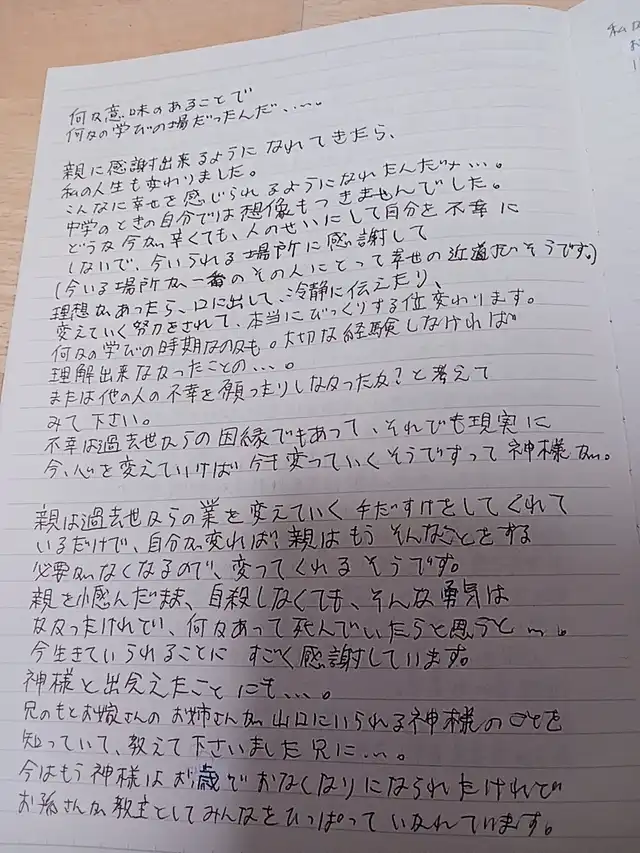 何か意味のあることで
何かの学びの場だったんだ、、、。
親に感謝出来るようになれてきたら、
私の人生も変わりました。
こんなに幸せを感じられるようになれたんだよ、、、。
中学のときの自分では想像もつきませんでした。
どうか今が辛くても、人のせいにして自分を不幸に
しないで、今いられる場所に感謝して
(今いる場所が一番のその人にとって幸せの近道だそうです。)
理想があったら、口に出して、冷静に伝えたり、
変えていく努力をされて、本当にびっくりする位変わります。
何かの学びの時期なのかも。大切な経験しなければ
理解出来なかったことの、、、。
または他の人の不幸を願ったりしなかったか?と考えて
みて下さい。
不幸は過去世からの因縁でもあって、それでも現実に
今、心を変えていけば 今干変っていくそうですって神様が。
親は過去世からの業を変えていく手だすけをしてくれて
いるだけで、自分が変れば!親はもうそんなことをする
必要がなくなるので、変ってくれるそうです。
親を憾んだまま、自殺しなくても、そんな勇気は
なかったけれど、何かあって死んでいたらと思うと、、、。
今生きていられることにすごく感謝しています。
神様と出会えたことにも、、、。
兄のもとお嫁さんのお姉さんが山口にいられる神様のことを
知っていて、教えて下さいました兄に、、、。
今はもう神様はお歳でおなくなりになられたけれど
お孫さんが教主としてみんなをひっぱっていかれています。
私は